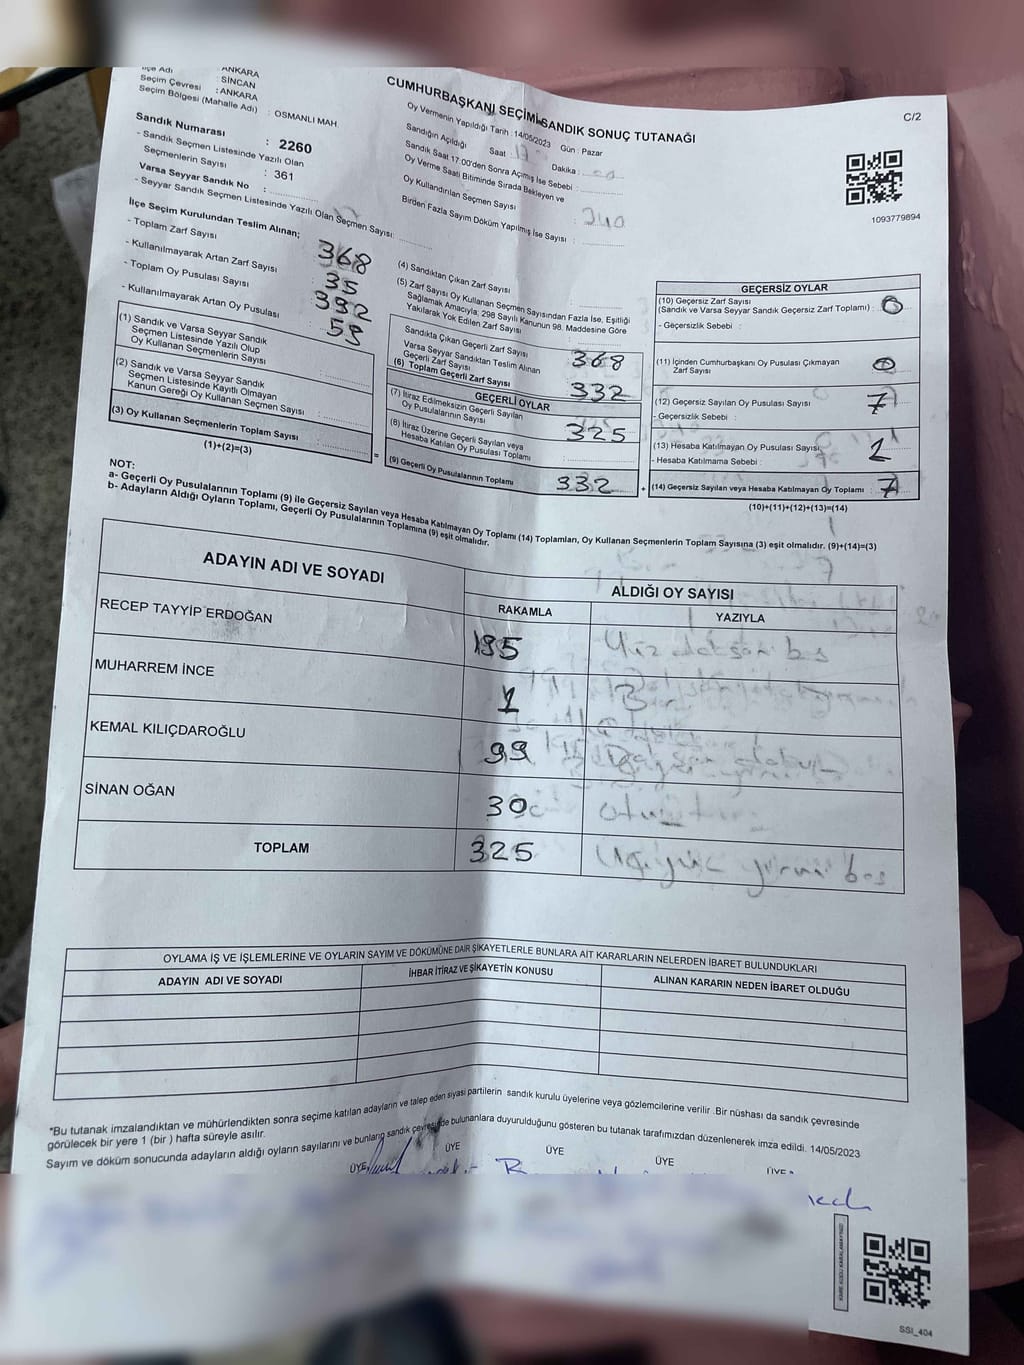 İlçe Adı : ANKARA
Seçim Çevresi : SİNCAN
Seçim Bölgesi (Mahalle Adı) : ANKARA
: OSMANLI MAH.
Sandık Numarası : 2260
- Sandık Seçmen Listesinde Yazılı Olan Seçmenlerin Sayısı : 361
Varsa Seyyar Sandık No :
- Seyyar Sandık Seçmen Listesinde Yazılı Olan Seçmen Sayısı:
CUMHURBAŞKANI SEÇİMİ SANDIK SONUÇ TUTANAĞI
C/2
Oy Vermenin Yapıldığı Tarih : 14/05/2023 Gün : Pazar
Sandığın Açıldığı Saat : 17 Dakika :
Sandık Saat 17:00'den Sonra Açılmış İse Sebebi :
Oy Verme Saati Bitiminde Sırada Bekleyen ve
Oy Kullandırılan Seçmen Sayısı
Birden Fazla Sayım Döküm Yapılmış İse Sayısı :
1093779894
İlçe Seçim Kurulundan Teslim Alınan;
- Toplam Zarf Sayısı 368
- Kullanılmayarak Artan Zarf Sayısı 35
- Toplam Oy Pusulası Sayısı
- Kullanılmayarak Artan Oy Pusulası
(1) Sandık ve Varsa Seyyar Sandık
Seçmen Listesinde Yazılı Olup
Oy Kullanan Seçmenlerin Sayısı
(2) Sandık ve Varsa Seyyar Sandık
Seçmen Listesinde Kayıtlı Olmayan
Kanun Gereği Oy Kullanan Seçmen Sayısı :
(3) Oy Kullanan Seçmenlerin Toplam Sayısı :
(1)+(2)=(3)
(4) Sandıktan Çıkan Zarf Sayısı
(5) Zarf Sayısı Oy Kullanan Seçmen Sayısından Fazla İse, Eşitliği
Sağlamak Amacıyla; 298 Sayılı Kanunun 98. Maddesine Göre
Yakılarak Yok Edilen Zarf Sayısı
Sandıkta Çıkan Geçerli Zarf Sayısı 368
Varsa Seyyar Sandıktan Teslim Alınan
Geçerli Zarf Sayısı
(6) Toplam Geçerli Zarf Sayısı 332
GEÇERLİ OYLAR
(7) İtiraz Edilmeksizin Geçerli Sayılan
Oy Pusulalarının Sayısı 325
(8) İtiraz Üzerine Geçerli Sayılan veya
Hesaba Katılan Oy Pusulası Toplamı
(9) Geçerli Oy Pusulalarının Toplamı 332
GEÇERSİZ OYLAR
(10) Geçersiz Zarf Sayısı
(Sandık ve Varsa Seyyar Sandık Geçersiz Zarf Toplamı) : 0
- Geçersizlik Sebebi :
(11) İçinden Cumhurbaşkanı Oy Pusulası Çıkmayan
Zarf Sayısı 0
(12) Geçersiz Sayılan Oy Pusulası Sayısı : 7
- Geçersizlik Sebebi :
(13) Hesaba Katılmayan Oy Pusulası Sayısı
- Hesaba Katılmama Sebebi :
(14) Geçersiz Sayılan veya Hesaba Katılmayan Oy Toplamı : 7
(10)+(11)+(12)+(13)=(14)
NOT:
a- Geçerli Oy Pusulalarının Toplamı (9) ile Geçersiz Sayılan veya Hesaba Katılmayan Oy Toplamı (14) Toplamları, Oy Kullanan Seçmenlerin Toplam Sayısına (3) eşit olmalıdır. (9)+(14)=(3)
b- Adayların Aldığı Oyların Toplamı, Geçerli Oy Pusulalarının Toplamına (9) eşit olmalıdır.
ADAYIN ADI VE SOYADI
ALDIĞI OY SAYISI
RAKAMLA YAZIYLA
RECEP TAYYİP ERDOĞAN 195 Yüz doksan beş
MUHARREM İNCE 1 Bir
KEMAL KILIÇDAROĞLU 99 Doksan dokuz
SİNAN OĞAN 30 otuz
TOPLAM 325 Üçyüz yirmi beş
OYLAMA İŞ VE İŞLEMLERİNE VE OYLARIN SAYIM VE DÖKÜMÜNE DAİR ŞİKAYETLERLE BUNLARA AİT KARARLARIN NELERDEN İBARET BULUNDUKLARI
ADAYIN ADI VE SOYADI İHBAR İTİRAZ VE ŞİKAYETİN KONUSU ALINAN KARARIN NEDEN İBARET OLDUĞU
*Bu tutanak imzalandıktan ve mühürlendikten sonra seçime katılan adayların ve talep eden siyasi partilerin sandık kurulu üyelerine veya gözlemcilerine verilir .Bir nüshası da sandık çevresinde
görülecek bir yere 1 (bir ) hafta süreyle asılır.
Sayım ve döküm sonucunda adayların aldığı oyların sayılarını ve bunların sandık çevresinde bulunanlara duyurulduğunu gösteren bu tutanak tarafımızdan düzenlenerek imza edildi. 14/05/2023
ÜYE ÜYE ÜYE ÜYE ÜYE
SSI_404